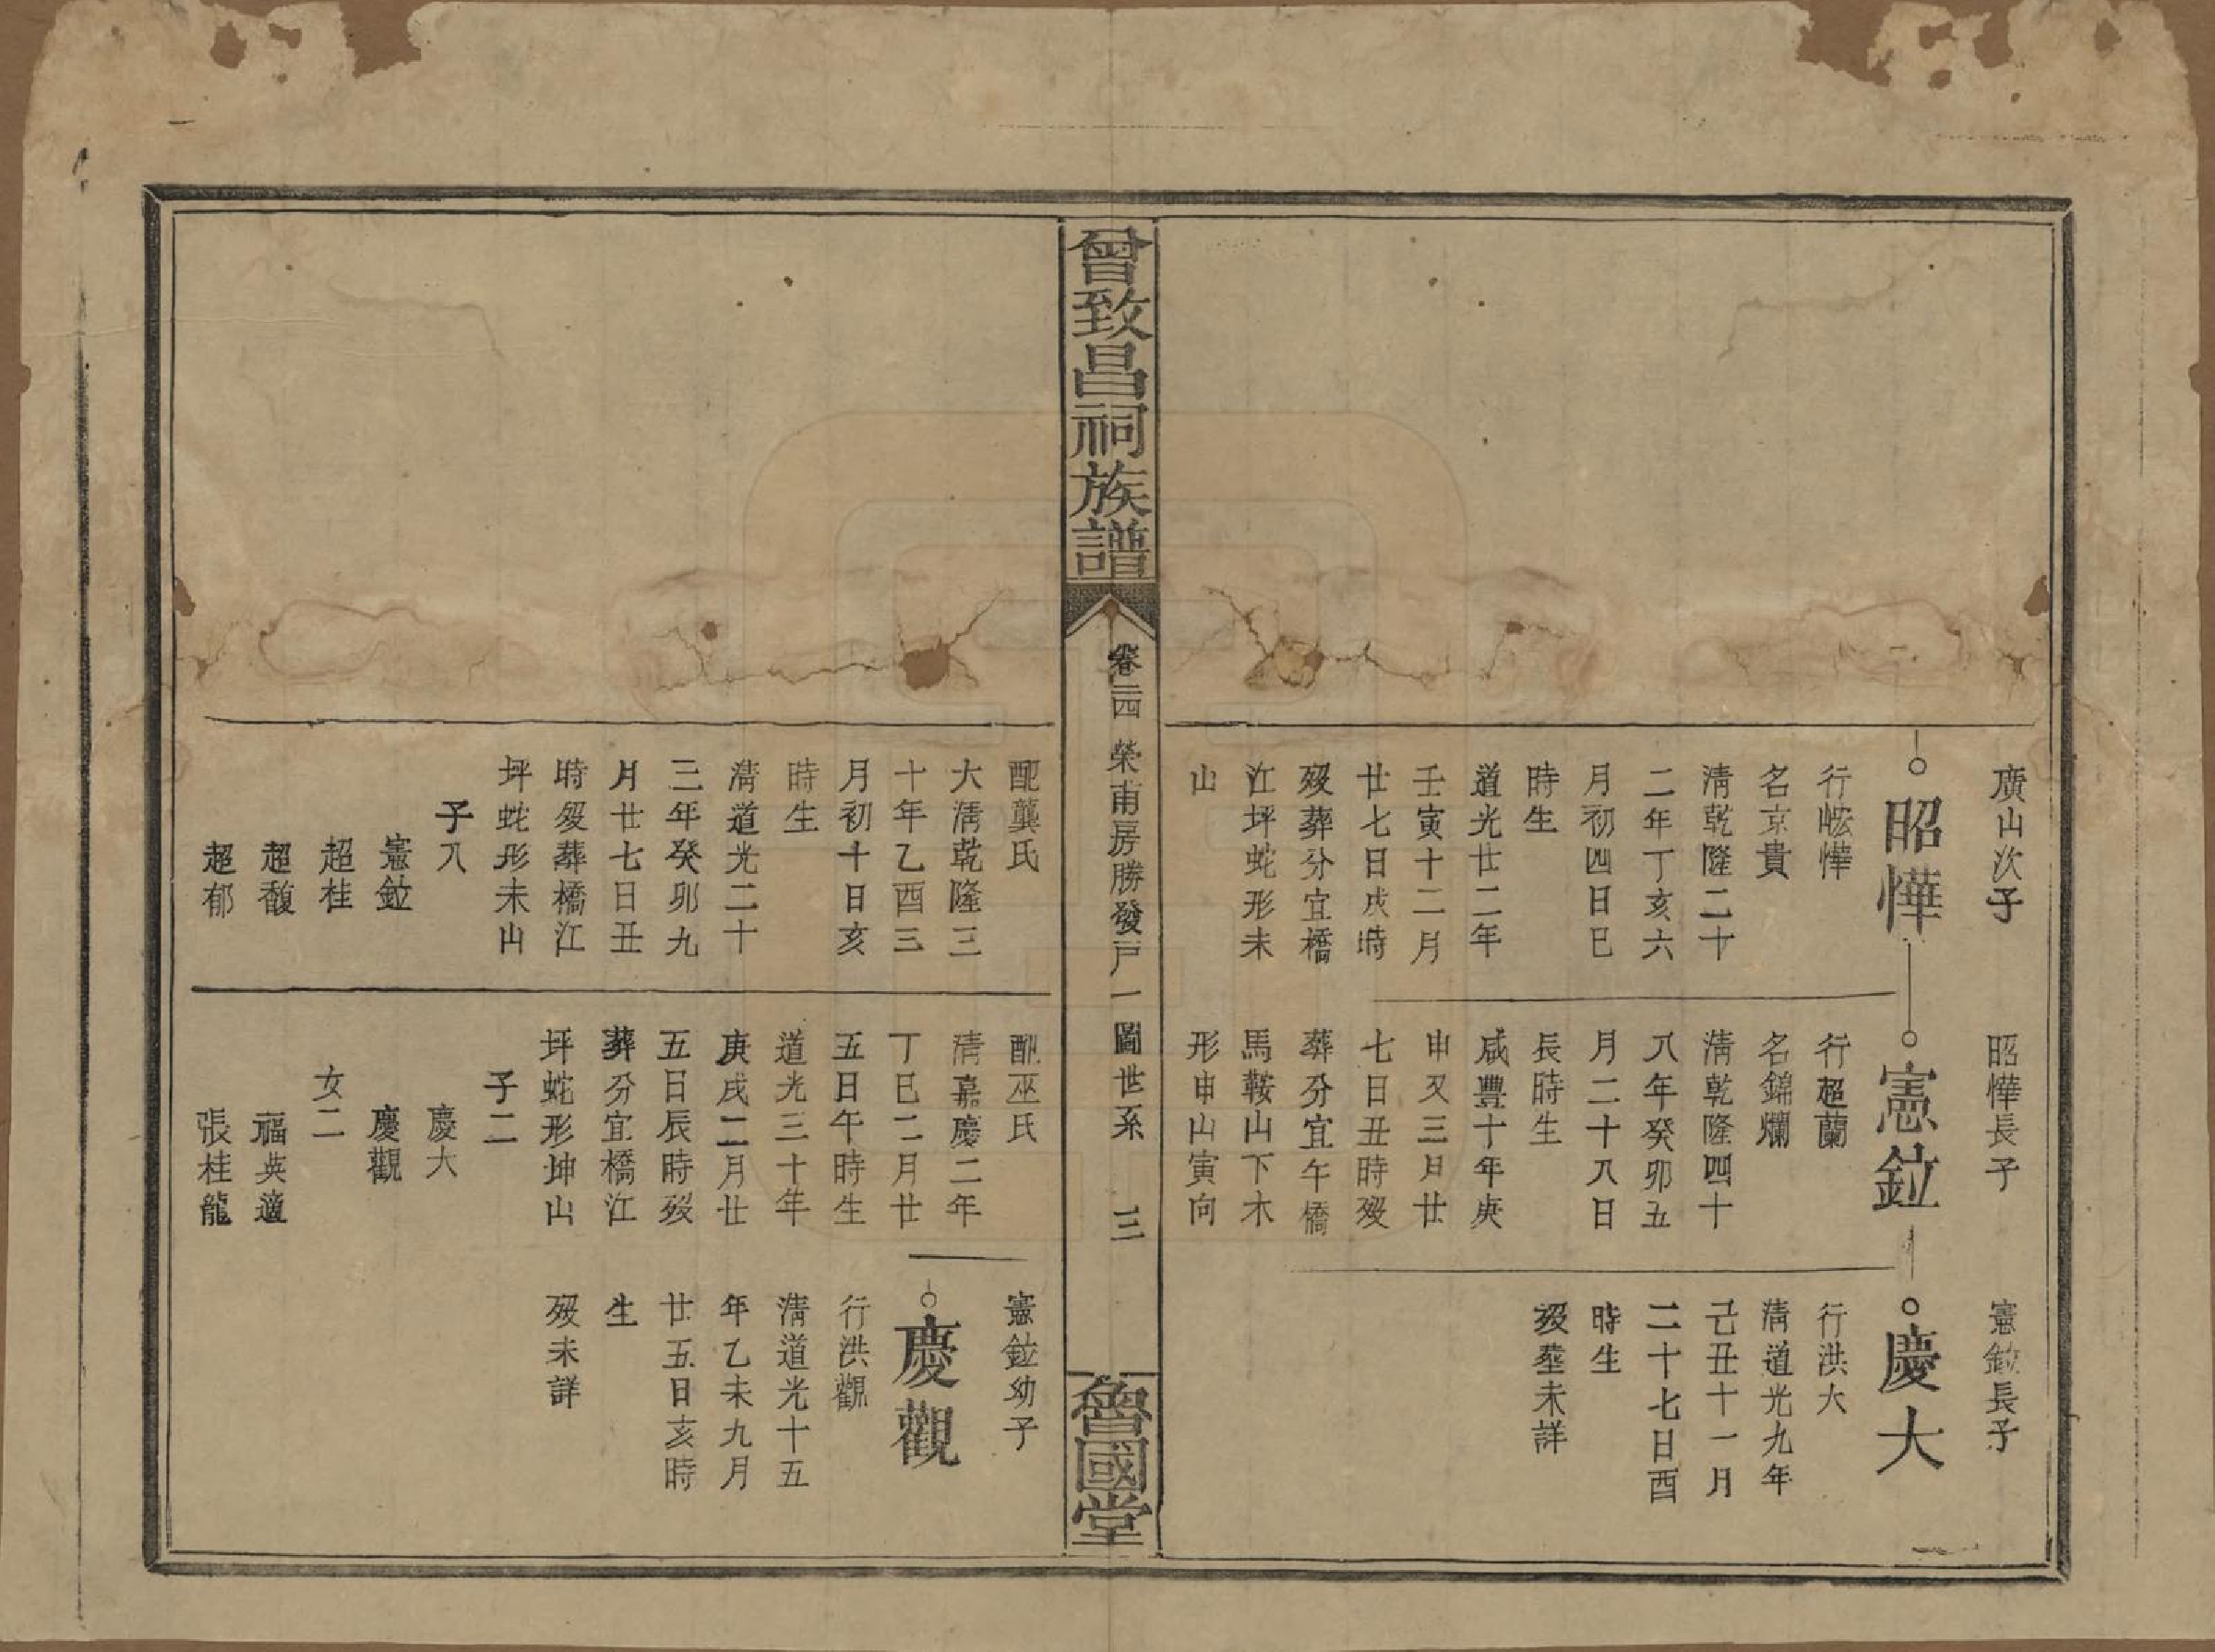 廣山次子
昭㦊
行𡵓㦊
名京貴
淸乾隆二十
二年丁亥六
月初四日巳
時生
道光廿二年
壬寅十二月
廿七日戌時
歿葬分宜橋
江坪蛇形未
山
昭㦊長子
憲鉝
行超蘭
名錦爛
淸乾隆四十
八年癸卯五
月二十八日
長時生
咸豐十年庚
申又三月廿
七日丑時歿
葬分宜午橋
馬鞍山下木
形申山寅向
憲鉝長子
慶大
行洪大
淸道光九年
己丑十一月
二十七日酉
時生
歿塟未詳
曾致昌祠族譜
卷二四 榮甫房勝發戸一圖世系 三
魯國堂
配龔氏
大淸乾隆三
十年乙酉三
月初十日亥
時生
淸道光二十
三年癸卯九
月廿七日丑
時歿葬橋江
坪蛇形未山
子八
憲鉝
超桂
超馥
超郁
配巫氏
淸嘉慶二年
丁巳二月廿
五日午時生
道光三十年
庚戌二月廿
五日辰時歿
葬分宜橋江
坪蛇形坤山
子二
慶大
慶觀
女二
福英適
張桂龍
憲鉝幼子
慶觀
行洪觀
淸道光十五
年乙未九月
廿五日亥時
生
歿未詳